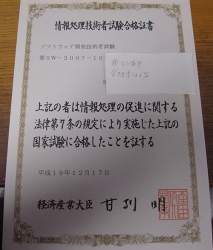 情報処理技術者試験合格証書
ソフトウェア開発技術者試験
第SW-2007-10
上記の者は情報処理の促進に関する
法律第7条の規定により実施した上記の
国家試験に合格したことを証する
平成19年12月17日
経済産業大臣 甘利 明